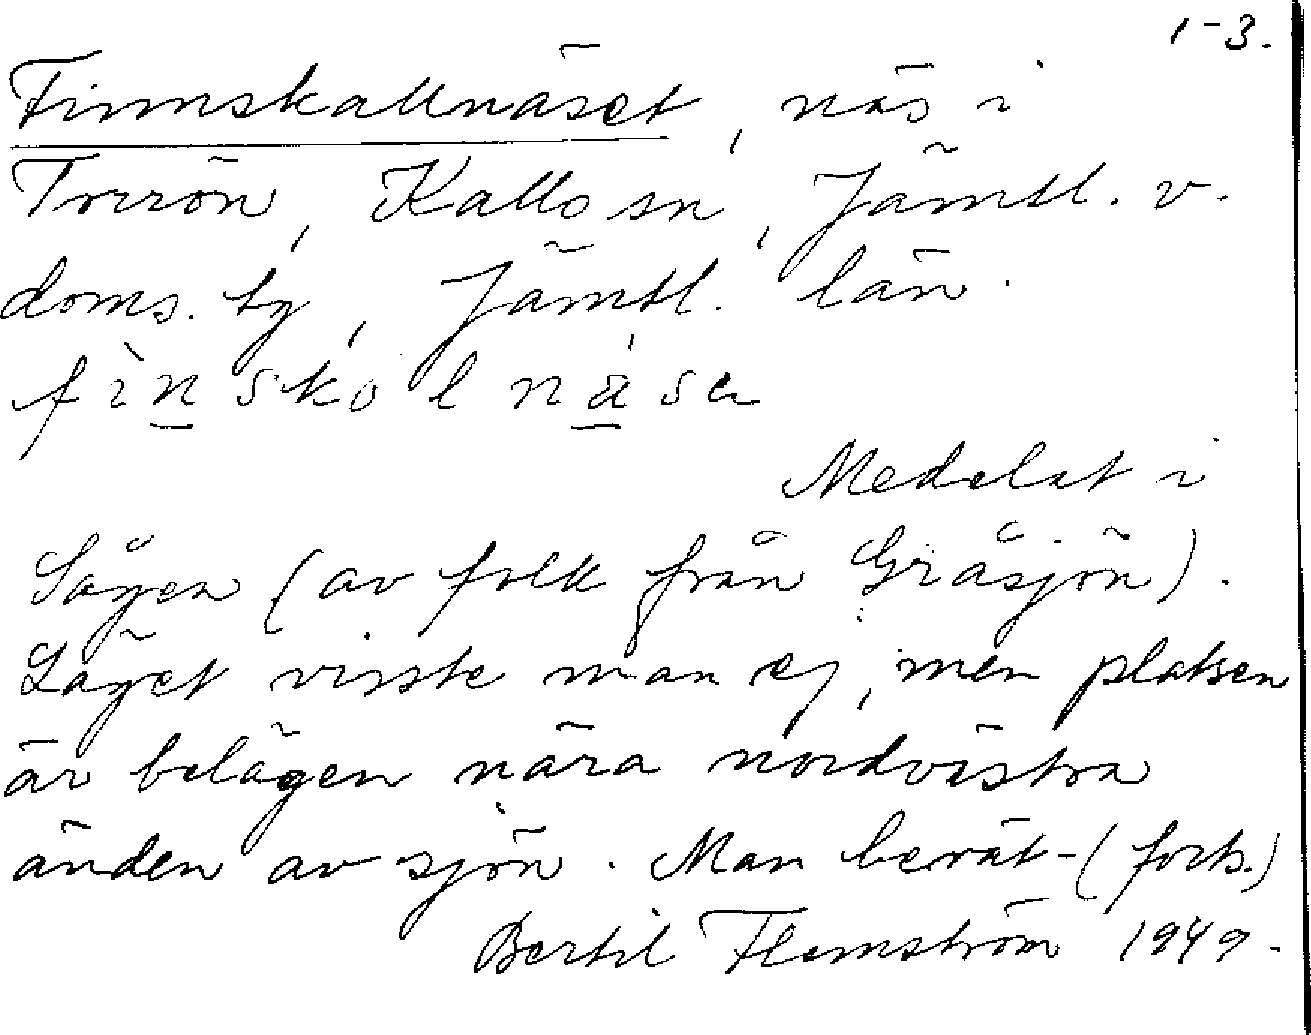 1-3.
Finnskallnäset, näs i
Torrön, Kalls sn, Jämtl. v.
doms. by, Jämtl. län.
fìnskolnása
Meddelat i
Sågen (av folk från Gråsjön).
Läget visste man ej, men platsen
är belägen nära nordvästra
änden av sjön. Man berät-(forts.)
Bertil Flemström 1949.